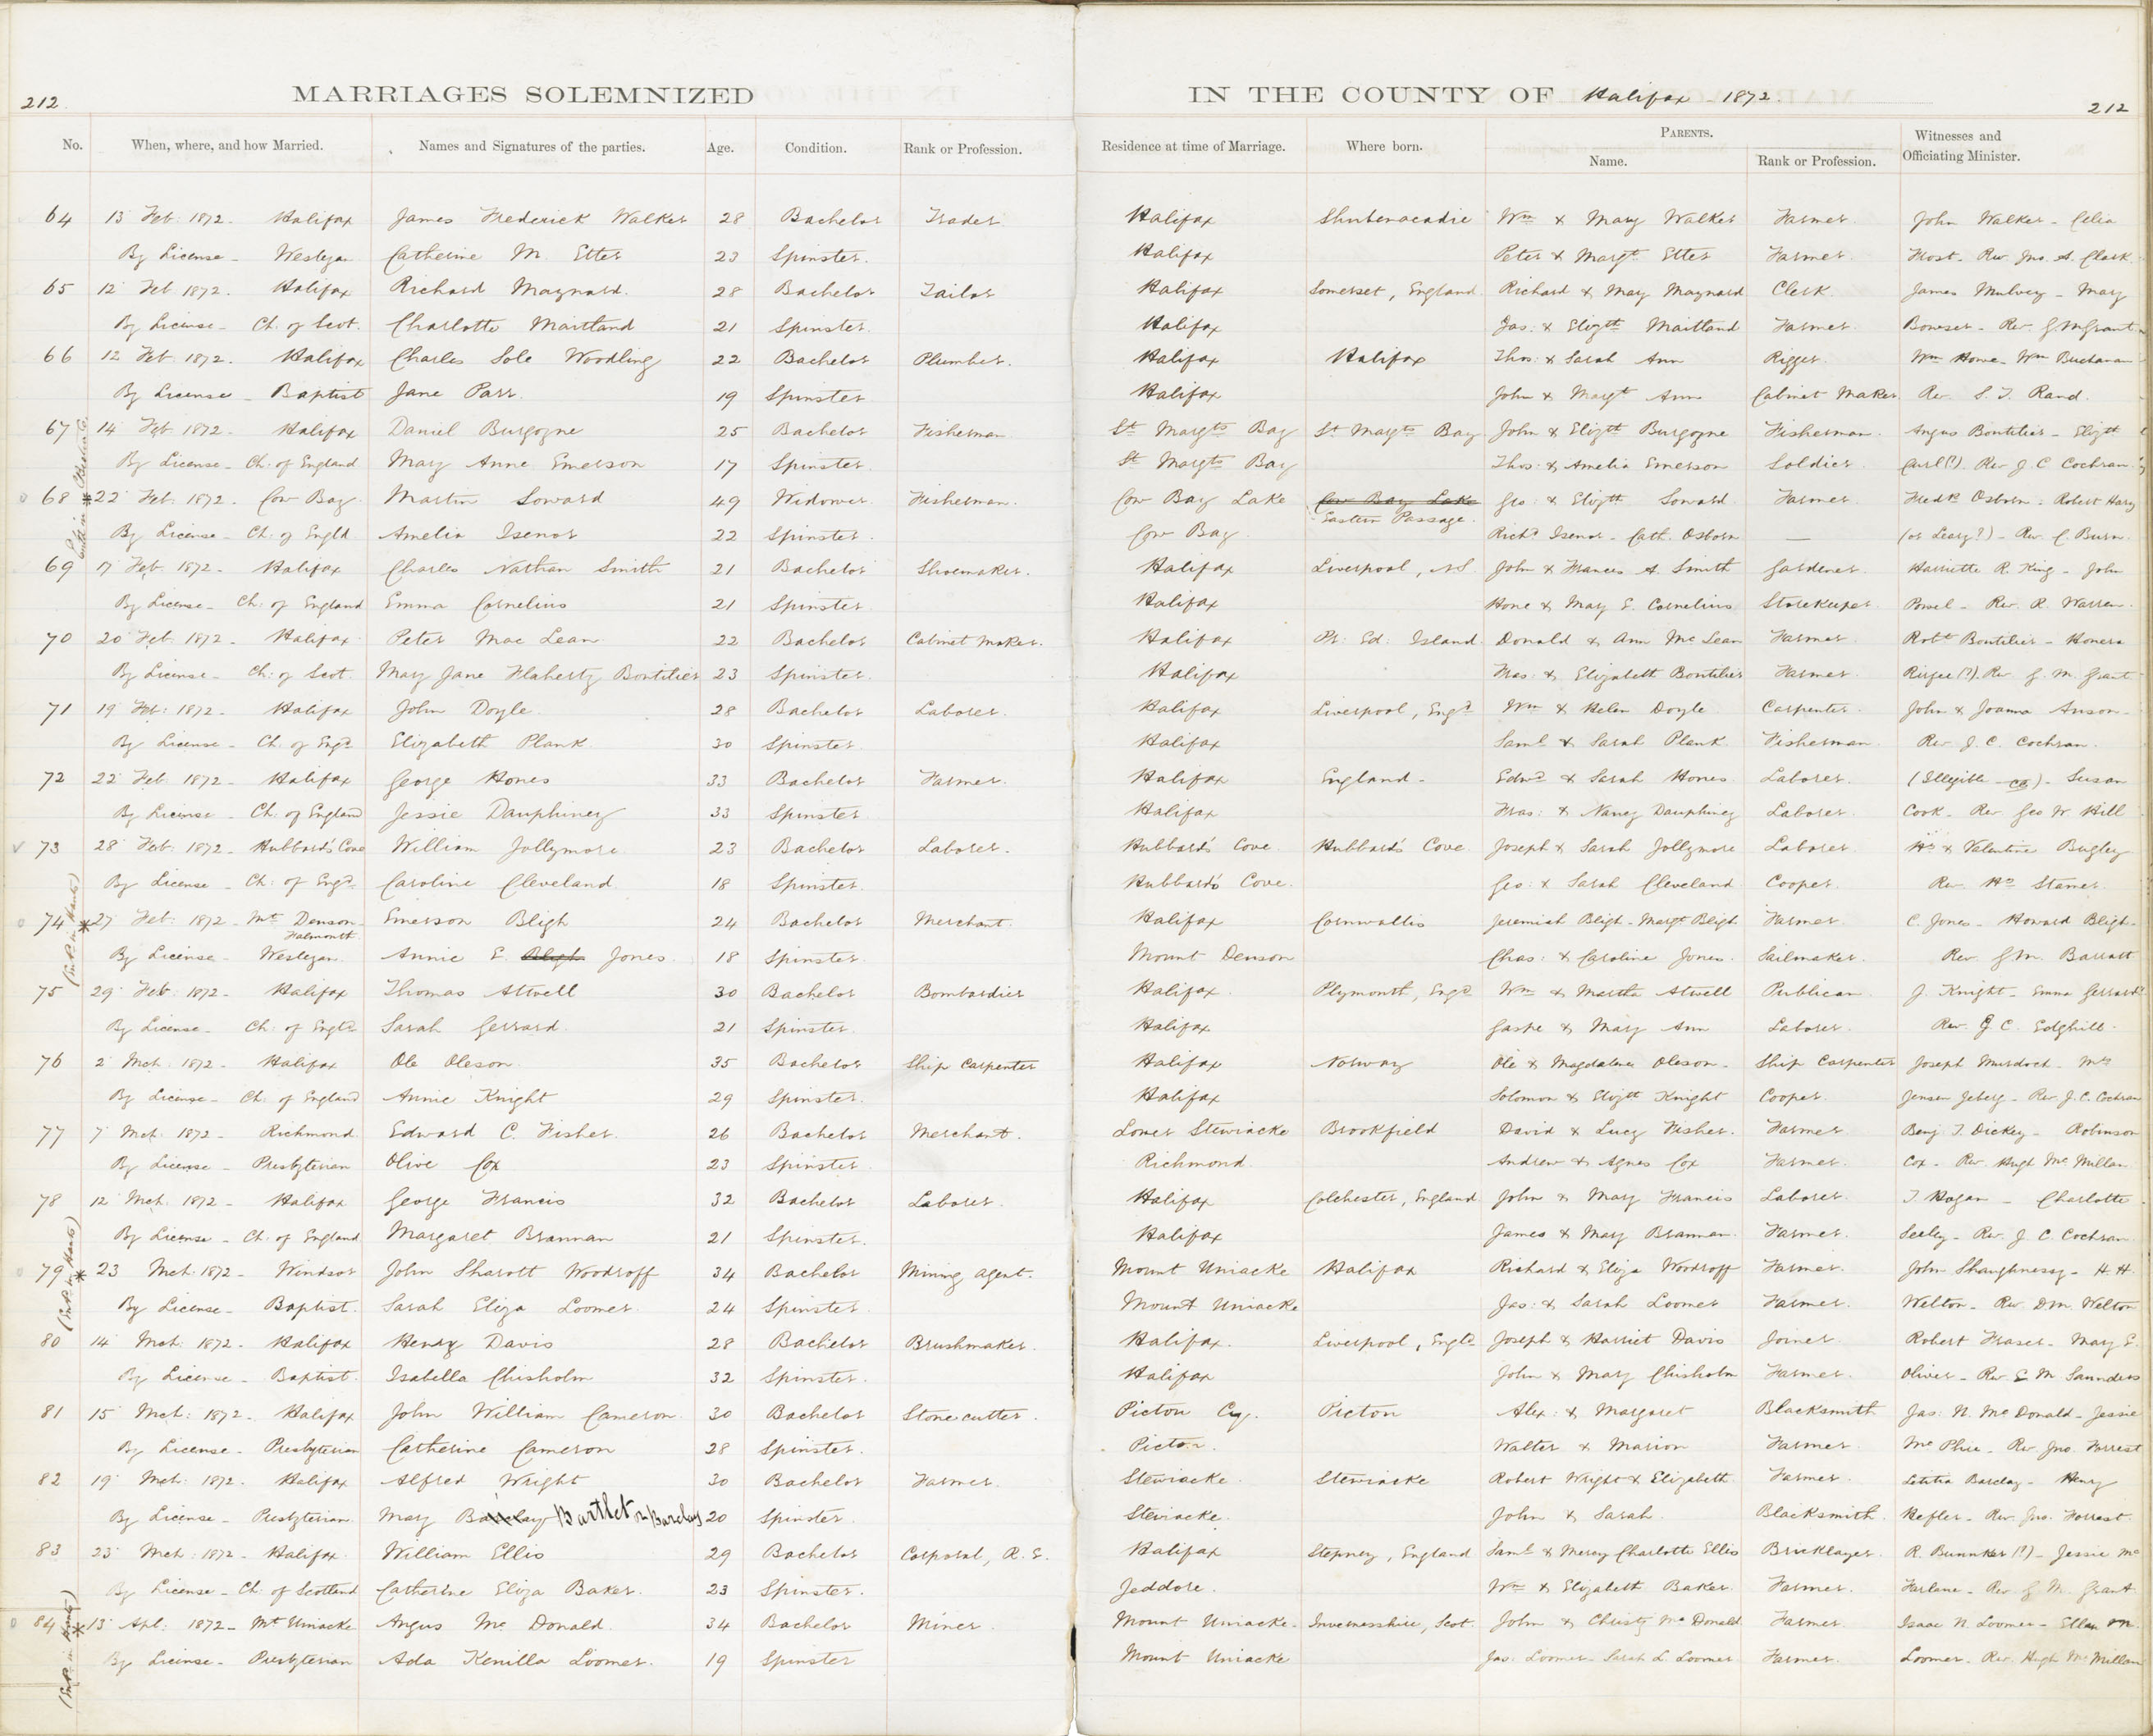 212 MARRIAGES SOLEMNIZED IN THE COUNTY OF Halifax - 1872. 212
No. When, where, and how Married. Names and Signatures of the parties. Age. Condition. Rank or Profession. Residence at time of Marriage. Where born. PARENTS. Name. Rank or Profession. Witnesses and Officiating Minister.
64 13 Feb: 1872. Halifax James Frederick Walker 28 Bachelor Trader Halifax Shubenacadie Wm & Mary Walker Farmer John Walker - Celia
By License - Wesleyan Catherine M. Etter 23 Spinster. Halifax Peter & Margt Etter Farmer Frost. Rev. Jno. A. Clark
65 12 Feb 1872. Halifax Richard Maynard. 28 Bachelor Tailor Halifax Somerset, England Richard & Mary Maynard Clerk James Mulvey - Mary
By License - Ch. of Scot. Charlotte Maitland 21 Spinster. Halifax Jas: & Elizth Maitland Farmer Bowser - Rev. G M Grant
66 12 Feb. 1872. Halifax Charles Sole Woodling 22 Bachelor Plumber. Halifax Halifax Thos: & Sarah Ann Rigger Wm Howe - Wm Buchanan
By License - Baptist Jane Parr. 19 Spinster Halifax John & Margt Ann Cabinet Maker Rev. S. T. Rand.
67 14 Feb 1872. Halifax Daniel Burgoyne 25 Bachelor Fisherman St Margts Bay St Margts Bay John & Elizth Burgoyne Fisherman. Angus Boutilier - Elizth
By License - Ch. of England Mary Anne Emerson 17 Spinster. St Margts Bay Thos: & Amelia Emerson Soldier (?). Rev J. C Cochran
68 *22 Feb. 1872. Cow Bay Martin Soward 49 Widower. Fisherman. Cow Bay Lake Cow Bay Lake Eastern Passage. Geo: & Elizth Soward Farmer Fredk Osborn. Robert Hary
By License - Ch: of Engld Amelia Isenor 22 Spinster. Cow Bay Richd Isenor - Cath. Osborn — (or Leary?) - Rev. C. Burn.
69 17 Feb. 1872. Halifax Charles Nathan Smith 21 Bachelor Shoemaker. Halifax Liverpool, NS John & Frances A. Smith Gardener Harriette R. King - John
By License - Ch: of England Emma Cornelius 21 Spinster. Halifax Hone & Mary E. Cornelius Storekeeper. Powel - Rev. R. Warren.
70 20 Feb. 1872 - Halifax Peter Mac Lean 22 Bachelor Cabinet Maker. Halifax Pr: Ed: Island Donald & Ann Mc Lean Farmer Robt Boutilier -
By License - Ch: of Scot. Mary Jane Flaherty Boutilier 23 Spinster. Halifax Fras: & Elizabeth Boutilier Farmer. (?). Rev. G. M. Grant
71 19 Feb: 1872 - Halifax John Doyle 28 Bachelor Laborer. Halifax Liverpool, Engd Wm & Helen Doyle Carpenter John & Joanna Anson -
By License - Ch. of Engd Elizabeth Plank. 30 Spinster. Halifax Saml & Sarah Plank Fisherman Rev. J. C. Cochran.
72 22 Feb 1872 - Halifax George Hones 33 Bachelor Farmer. Halifax England - Edwd & Sarah Hones Laborer. (Illegible - CB). Susan
By License - Ch: of England Jessie Dauphiney 33 Spinster Halifax Fras: & Nancy Dauphiney Laborer Cook. Rev Geo W Hill
73 28 Feb: 1872 - Hubbard's Cove William Jollymore 23 Bachelor Laborer. Hubbard's Cove Hubbard's Cove Joseph & Sarah Jollymore Laborer. & Valentine Bugley
By License - Ch: of Engd. Caroline Cleveland 18 Spinster. Hubbard's Cove. Geo: & Sarah Cleveland Cooper. Rev. Hy Stamer.
74 *27 Feb: 1872 - Mt Denson Falmouth Emerson Bligh 24 Bachelor Merchant. Halifax Cornwallis Jeremiah Bligh - Margt Bligh Farmer C. Jones - Howard Bligh -
By License - Wesleyan Annie E. Bligh Jones 18 Spinster. Mount Denson Chas: & Caroline Jones. Sailmaker. Rev. G M. Barratt
75 29 Feb: 1872 - Halifax Thomas Atwell 30 Bachelor Bombardier Halifax Plymouth, Engd Wm & Martha Atwell Publican J. Knight - Emma Gerrard
By License - Ch: of Engld Sarah Gerrard. 21 Spinster. Halifax & Mary Ann Laborer. Rev. J. C. Edghill.
76 2 Mch: 1872 - Halifax Ole Oleson. 35 Bachelor Ship Carpenter Halifax Norway Ole & Magdalena Oleson - Ship Carpenter Joseph Murdoch. Mrs
By License - Ch: of England Annie Knight 29 Spinster. Halifax Solomon & Elizth Knight Cooper. Jensen Jeberg - Rev. J. C. Cochran
77 7 Mch. 1872 - Richmond Edward C. Fisher. 26 Bachelor Merchant. Lower Stewiacke Brookfield David & Lucy Fisher. Farmer. Benj. T. Dickey - Robinson
By License - Presbyterian Olive Cox 23 Spinster Richmond Andrew & Agnes Cox Farmer. Cox - Rev. Hugh Mc Millan
78 12 Mch. 1872 - Halifax George Francis 32 Bachelor Laborer. Halifax Colchester, England John & Mary Francis Laborer. T Hogan - Charlotte
By License - Ch. of England Margaret Brannan 21 Spinster. Halifax James & Mary Brannan Farmer. Seeley - Rev. J. C. Cochran
79 *23 Mch. 1872 - Windsor John Sharott Woodroff 34 Bachelor Mining Agent. Mount Uniacke Halifax Richard & Eliza Woodroff Farmer. John Shaughnessy - H. H.
By License - Baptist. Sarah Eliza Loomer. 24 Spinster. Mount Uniacke Jas: & Sarah Loomer Farmer. Welton - Rev D M. Welton
80 14 Mch: 1872. Halifax Henry Davis 28 Bachelor Brushmaker. Halifax. Liverpool, Engld Joseph & Harriet Davis Joiner Robert Fraser - Mary E.
By License - Baptist. Isabella Chisholm 32 Spinster. Halifax John & Mary Chisholm Farmer. Oliver - Rev. E M Saunders
81 15 Mch: 1872 - Halifax John William Cameron 30 Bachelor Stonecutter. Pictou Cy. Pictou Alex: & Margaret Blacksmith Jas: N. Mc Donald - Jessie
By License - Presbyterian Catherine Cameron 28 Spinster. Pictou. Walter & Marion Farmer. Mc Phie - Rev Jno. Forrest
82 19 Mch: 1872. Halifax Alfred Wright 30 Bachelor Farmer. Stewiacke Stewiacke Robert Wright & Elizabeth Farmer. Letitia Barclay - Henry
By License - Presbyterian. Mary Barclay Bartlet or Barclay 20 Spinster. Stewiacke. John & Sarah. Blacksmith. Hefler - Rev. Jno. Forrest.
83 23 Mch: 1872 - Halifax. William Ellis 29 Bachelor Corporal, R. E. Halifax Stepney, England Saml & Mercy Charlotte Ellis Bricklayer. R. Bunnker (?) - Jessie Mc
By License - Ch: of Scotland Catherine Eliza Baker. 23 Spinster. Jeddore. Wm & Elizabeth Baker. Farmer. Farlane - Rev. G M. Grant
84 *13 Apl: 1872 - Mt Uniacke Angus Mc Donald. 34 Bachelor Miner. Mount Uniacke. Invernesshire, Scot. John & Christy Mc Donald Farmer. Isaac N. Loomer - Ellen M.
By License - Presbyterian Ada Kenilla Loomer. 19 Spinster Mount Uniacke Jas. Loomer - Sarah L. Loomer Farmer. Loomer - Rev. Hugh Mc Millan